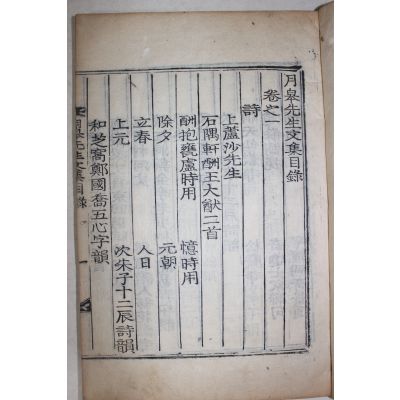 月皐先生文集目錄
卷之一
詩
上蘆沙先生
石隅軒酬王大猷二首
酬抱甕盧時用 憶時用
除夕 元朝
立春 人日
上元 次朱子十二辰詩韻
和芝窩鄭國喬五心字韻
月皐先生文集目錄 一